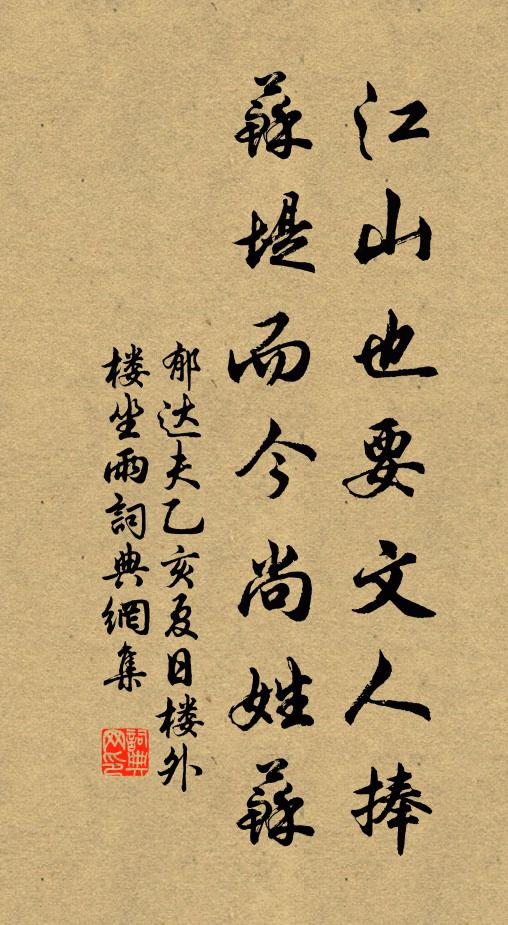 江山也要文人捧
蘇堤而今尚姓蘇
郁达夫乙亥夏日楼外
楼坐雨詞典網集
詞典
网印